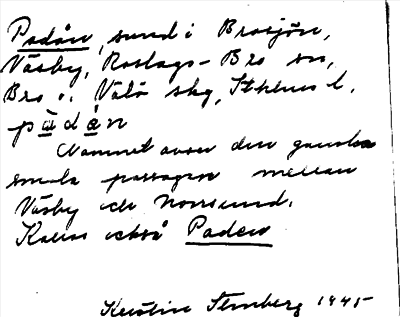 Padån, sund i Brosjön,
Väsby, Roslags-Bro sn,
Bro o. Vätö skg, Sthlms l.
pådån
Namnet avser den ganska
smala passagen mellan
Väsby och Norrsund.
Kallas också Paden
Kerstin Stenberg 1945